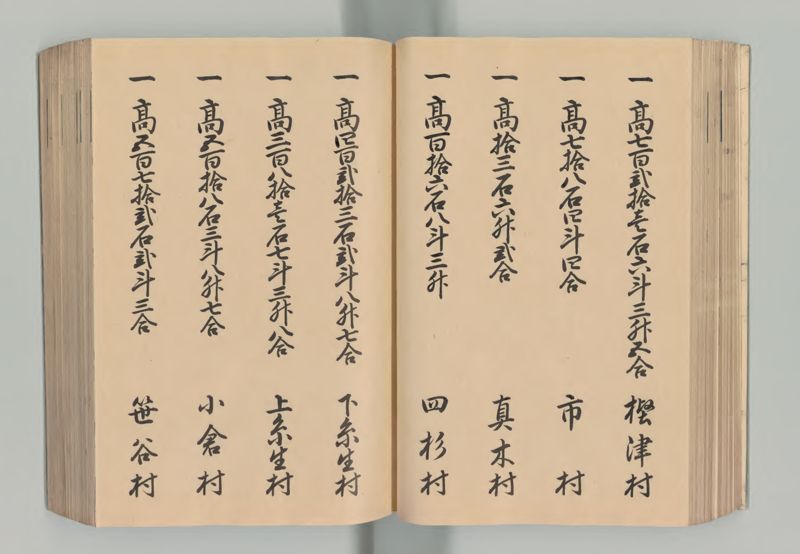 一 高七百弐拾壱石六斗三升五合 樫津村
一 高七拾八石四斗四合 市村
一 高拾三石六升弐合 真木村
一 高百拾六石八斗三升 四杉村
一 高四百弐拾三石弐斗八升七合 下糸生村
一 高三百八拾壱石七斗三升八合 上糸生村
一 高五百拾八石三斗八升七合 小倉村
一 高五百七拾弐石弐斗三合 笹谷村